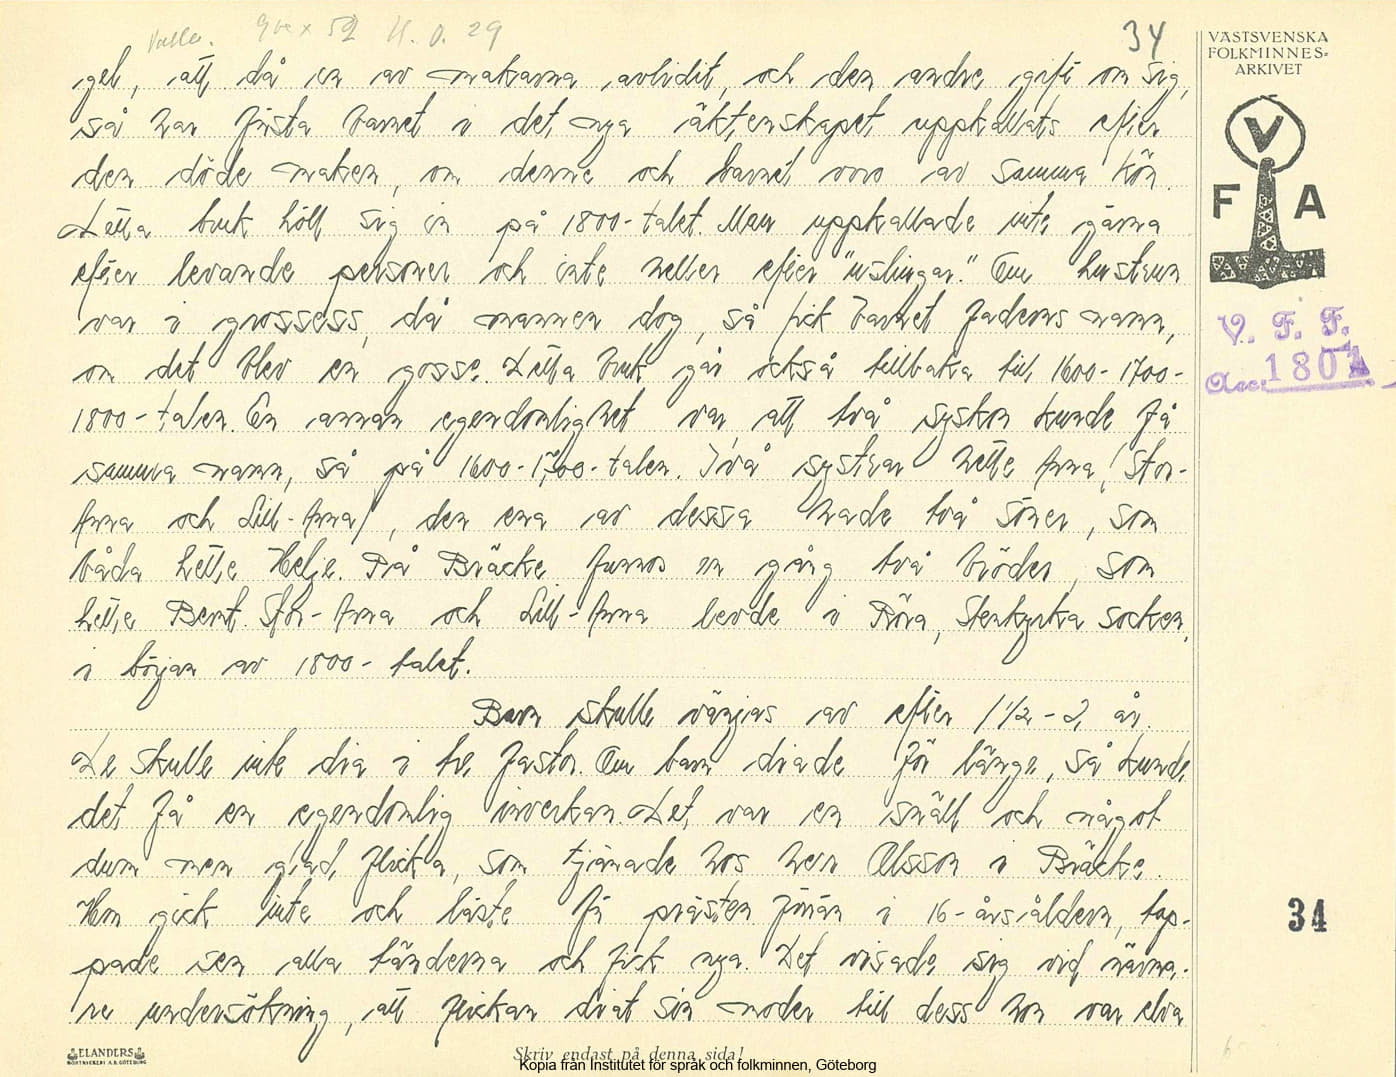 Valla. 9 ex 52 H. O. 29
34
VÄSTSVENSKA
FOLKMINNES=
ARKIVET
V
F A
V. F. F.
Acc: 1801
gel, att då en av makarna avlidit, och den andre gift om sig,
så har första barnet i det nya äktenskapet uppkallats efter
den döde maken, om denne och barnet voro av samma kön.
Detta bruk höll sig in på 1800-talet. Man uppkallade inte gärna
efter levande personer och inte heller efter "uslingar." Om hustrun
var i grossess, då mannen dog, så fick barnet faderns namn,
om det blev en gosse. Detta bruk går också tillbaka till 1600-1700-
1800-talen. En annan egendomlighet var att två syskon kunde få
samma namn, så på 1600-1700-talen. Två systrar hette Anna (Stor-
Anna och Lill-Anna), den ena av dessa hade två söner, som
båda hette Helje. På Bräcke funnos en gång två bröder, som
hette Bernt. Stor-Anna och Lill-Anna levde i Röra, Stenkyrka socken,
i början av 1800-talet.
Barn skulle vänjas av efter 1 1/2 - 2 år.
De skulle inte dia i tre fastor. Om barn diade för länge, så kunde
det få en egendomlig inverkan. Det var en snäll och något
dum men glad flicka, som tjänade hos herr Olsson i Bräcke.
Hon gick inte och läste för prästen förrän i 16-årsåldern, tap-
pade sen alla tänderna och fick nya. Det visade sig vid närma-
re undersökning, att flickan diat sin moder till dess hon var elva
34
ELANDERS
BOKTRYCKERI A.B. GÖTEBORG
Skriv endast på denna sida!
Kopia från Institutet för språk och folkminnen, Göteborg